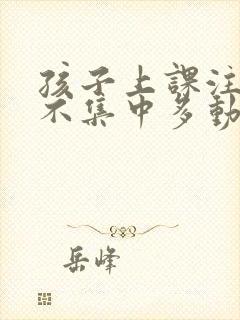 孩子上課注
不集中多動
岳峰